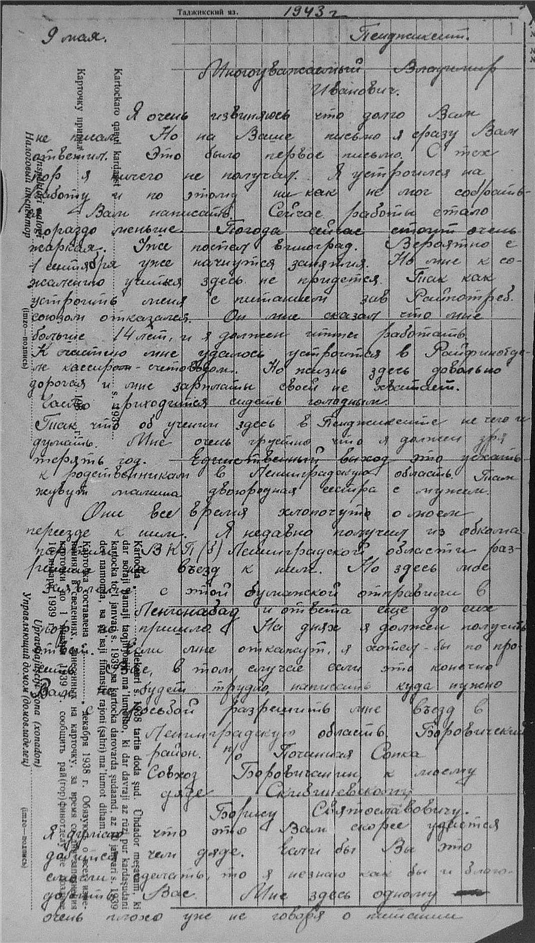 Таджикский из.
1943 г
1
9 мая.
Пенджикент.
Многоуважаемый Владимир
Иванович.
Я очень извиняюсь что долго Вам
не писал. Но на Ваше письмо я сразу Вам
ответил. Это было первое письмо. С тех
пор я ничего не получал. Я устроился на
работу и по этому ни как не мог собрать-
ся Вам написать. Сейчас работы стало
гораздо меньше. Погода сейчас стоит очень
жаркая. Уже поспел виноград. Вероятно с
1 сентября уже начнутся занятия. Но мне к со-
жалению учиться здесь не придется. Так как
устроить меня с питанием зав Райпотреб.
союзом отказался. Он мне сказал что мне
больше 14 лет, и я должен итти работать.
К счастию мне удалось устроится в Райфинотде-
ле кассиром-счетоводом. Но жизнь здесь довольно
дорогая и мне зарплаты своей не хватает.
Часто приходится сидеть голодным.
Так что об учении здесь в Пенджикенте не чего и
думать. Мне очень грустно что я должен зря
терять год. Единственный выход это уехать
к родственникам в Ленинградскую область. Там
живут мамина двоюродная сестра с мужем.
Они все время хлопочут о моем
переезде к ним. Я недавно получил из обкома
ВКП(б) Ленинградской области раз-
на въезд к ним. Но здесь мое
с этой бумажкой отправили в
Ленинабад и ответа еще до сих
пришло. На днях я должен получить
Если мне откажут, я хотел-бы по про-
сить в том случае если это конечно
Вам не будет трудно, написать куда нужно
с просьбой разрешить мне въезд в
Ленинградскую область, Боровичский
район. п/о Починная Сопка
Совхоз Боровичанин, к моему
дяде
Борису Святославовичу.
Я думаю что это Вам скорее удастся
добиться чем дяде. Если бы Вы это
смогли сделать, то я незнаю как бы и благо-
дарить Вас. Мне здесь одному
очень плохо уже не говоря о питании
Kartockaro qabul kardaast
Карточку принял
Налоговый инспектор
(imzo-подпись)
s. 193
193
Kartocka
dekabri s. 1938 tartib doda şud. Uhdador meşavam, ki
Карточка составлена
декабря 1938 г. Обязуюсь о всех изме-
s. 1939
1939 г. сообщить рай(гор)финотделу не позже
10 января 1939 г.
Управляющий домом (домовладелец)
(imzo—подпись)